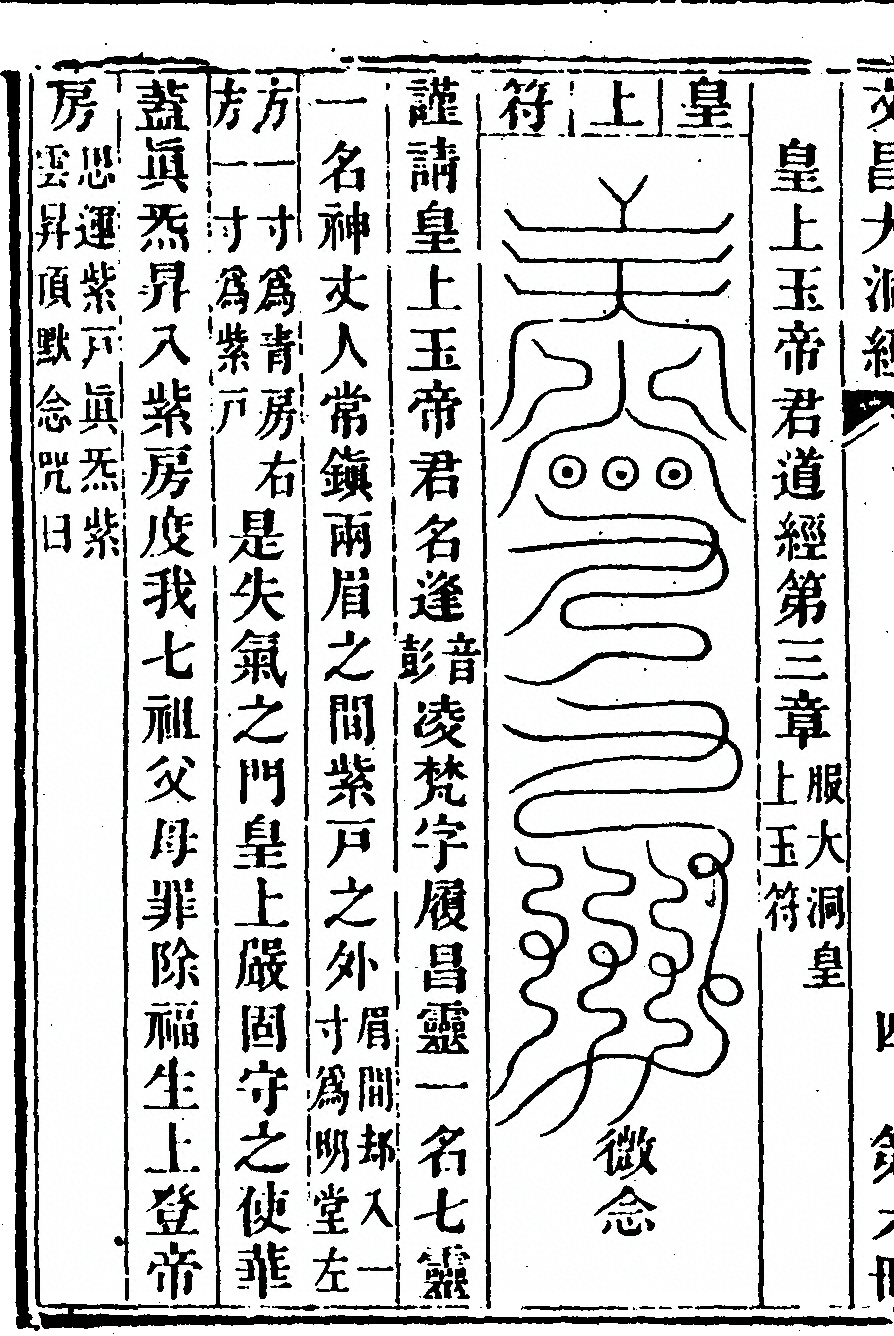 文昌大洞經
皇上玉帝君道經第三章服大洞皇上玉符
皇上符
微念
謹請皇上玉帝君名逢音彭凌梵字履昌靈一名七靈
一名神丈人常鎭兩眉之間紫戸之外眉間却入一寸爲明堂左
方一寸爲青房右方一寸爲紫戸是失氣之門皇上嚴固守之使華
蓋眞炁昇入紫房度我七祖父母罪除福生上登帝
房思運紫戸眞炁紫雲昇頂默念咒曰